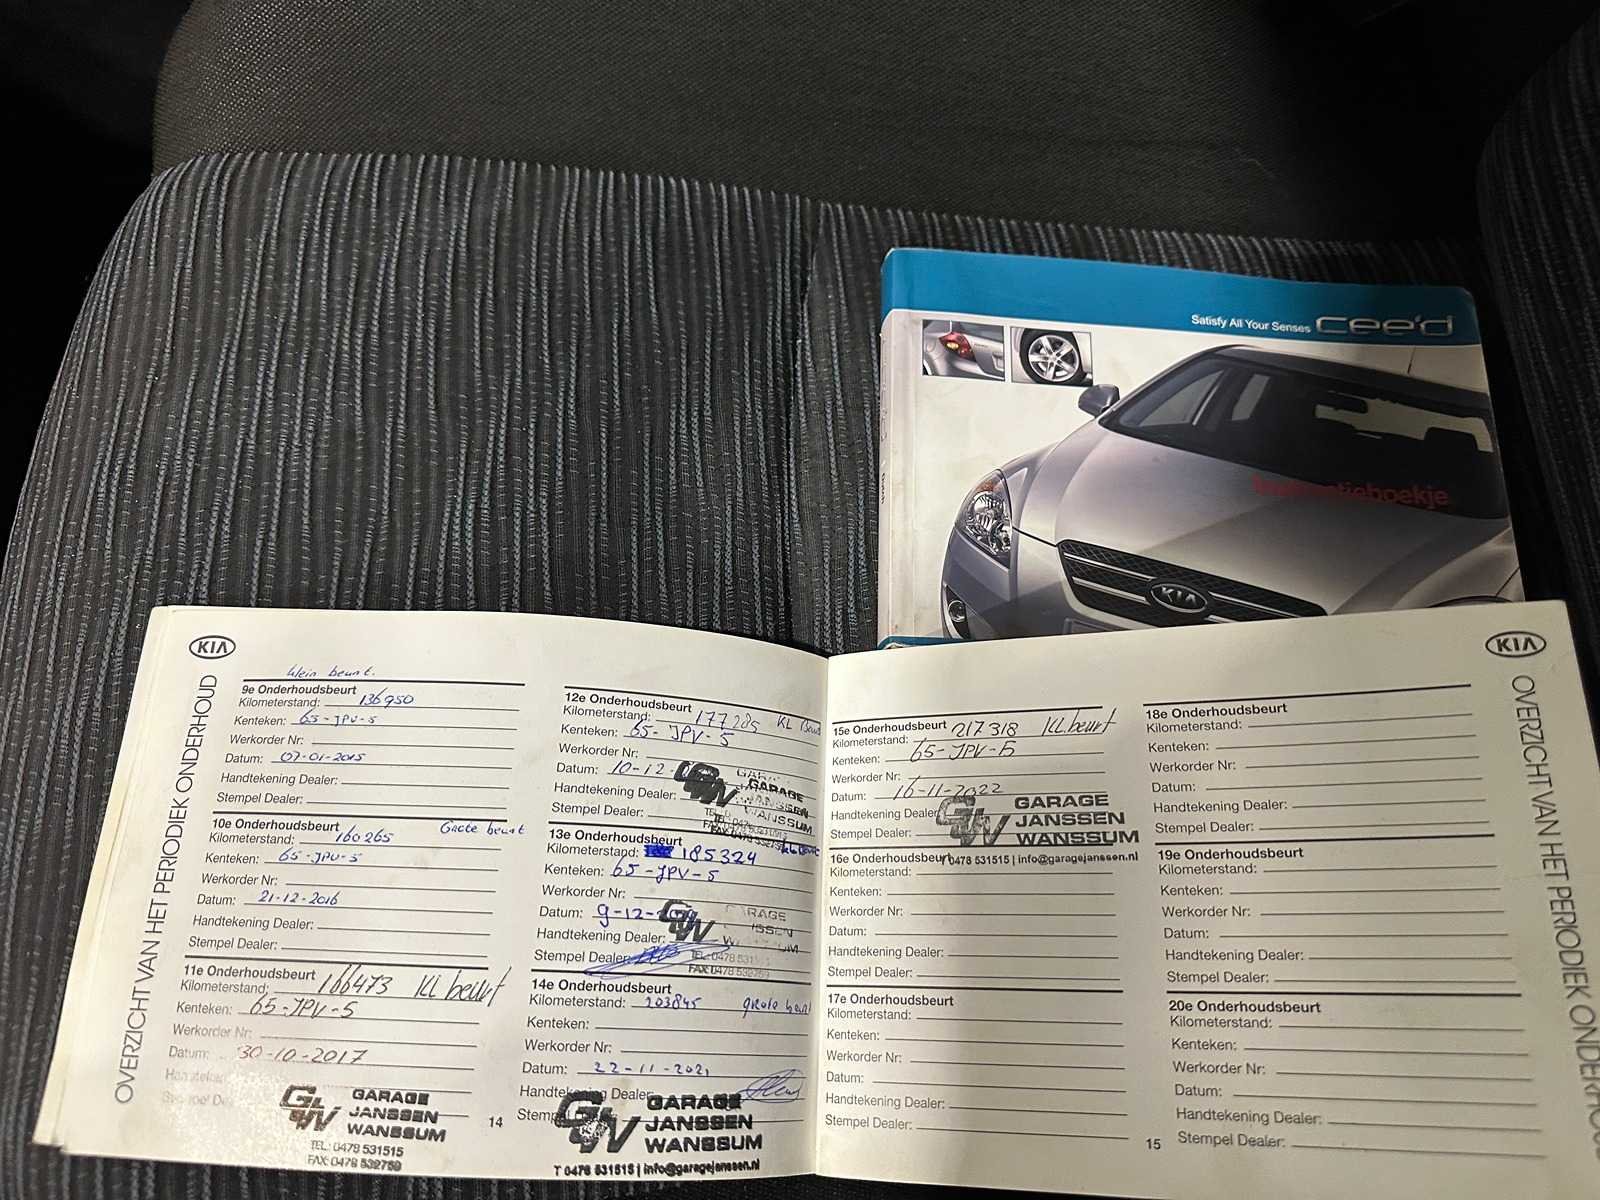 Satisfy All Your Senses cee'd
KIA
KIA
OVERZICHT VAN HET PERIODIEK ONDERHOUD
klein beurt.
9e Onderhoudsbeurt
Kilometerstand: 136950
Kenteken: 65-JPV-5
Werkorder Nr:
Datum: 07-01-2015
Handtekening Dealer:
Stempel Dealer:
10e Onderhoudsbeurt Grote beurt
Kilometerstand: 160265
Kenteken: 65-JPV-5
Werkorder Nr:
Datum: 21-12-2016
Handtekening Dealer:
Stempel Dealer:
11e Onderhoudsbeurt
Kilometerstand: 166473 KL beurt
Kenteken: 65-JPV-5
Werkorder Nr:
Datum: 30-10-2017
GW GARAGE
JANSSEN
WANSSUM
TEL: 0478 531515
FAX: 0478 532759
14
12e Onderhoudsbeurt
Kilometerstand: 177285 KL Beurt
Kenteken: 65-JPV-5
Werkorder Nr:
Datum: 10-12-
Handtekening Dealer:
Stempel Dealer:
GARAGE
JANSSEN
WANSSUM
13e Onderhoudsbeurt
Kilometerstand: 185324
Kenteken: 65-JPV-5
Werkorder Nr:
Datum: 9-12-
Handtekening Dealer:
Stempel Dealer:
TEL: 0478 531
FAX: 0478 532759
14e Onderhoudsbeurt
Kilometerstand: 203845 grote beurt
Kenteken:
Werkorder Nr:
Datum: 22-11-2021
Handtekening Dealer:
GW GARAGE
JANSSEN
WANSSUM
T 0478 531515 | info@garagejanssen.nl
15e Onderhoudsbeurt 217318 KL beurt
Kilometerstand:
Kenteken: 65-JPV-5
Werkorder Nr:
Datum: 16-11-2022
Handtekening Dealer:
Stempel Dealer:
GW GARAGE
JANSSEN
WANSSUM
T 0478 531515 | info@garagejanssen.nl
16e Onderhoudsbeurt
Kilometerstand:
Kenteken:
Werkorder Nr:
Datum:
Handtekening Dealer:
Stempel Dealer:
17e Onderhoudsbeurt
Kilometerstand:
Kenteken:
Werkorder Nr:
Datum:
Handtekening Dealer:
Stempel Dealer:
15
18e Onderhoudsbeurt
Kilometerstand:
Kenteken:
Werkorder Nr:
Datum:
Handtekening Dealer:
Stempel Dealer:
19e Onderhoudsbeurt
Kilometerstand:
Kenteken:
Werkorder Nr:
Datum:
Handtekening Dealer:
Stempel Dealer:
20e Onderhoudsbeurt
Kilometerstand:
Kenteken:
Werkorder Nr:
Datum:
Handtekening Dealer:
Stempel Dealer:
KIA
OVERZICHT VAN HET PERIODIEK